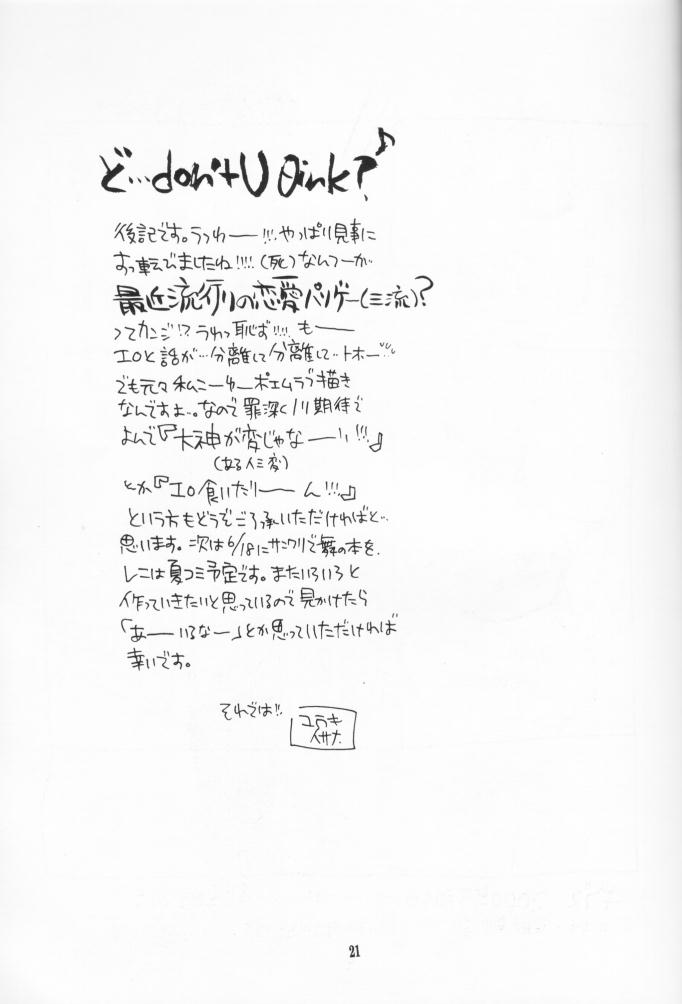 ど…don't U θink?♪
後記です。うっわー!!!、やっぱり見事に
すっ転でましたね!!!!(死)なんつーか
最近流行りの恋愛パソゲー(三流)?
ってカンジ!?うわっ恥ず!!!!、もー
エロと話が…分離して分離して…トホー
でも元々私こーゆーポエムラブ描き
なんですよ…。なので罪深く 期待で
よんで『大神が変じゃなーい!!!』
(ある イミ変)
とか『エロ食いたりーん!!!』
という方もどうぞご了承いただければと…
思います。次は6/18にサンクリで舞の本を、
レニは夏コミ予定です。またいろいろと
作っていきたいと思っているので見かけたら
「あーいるなー」とか思っていただければ
幸いです。
それでは!!
ユラキ
イサナ
21